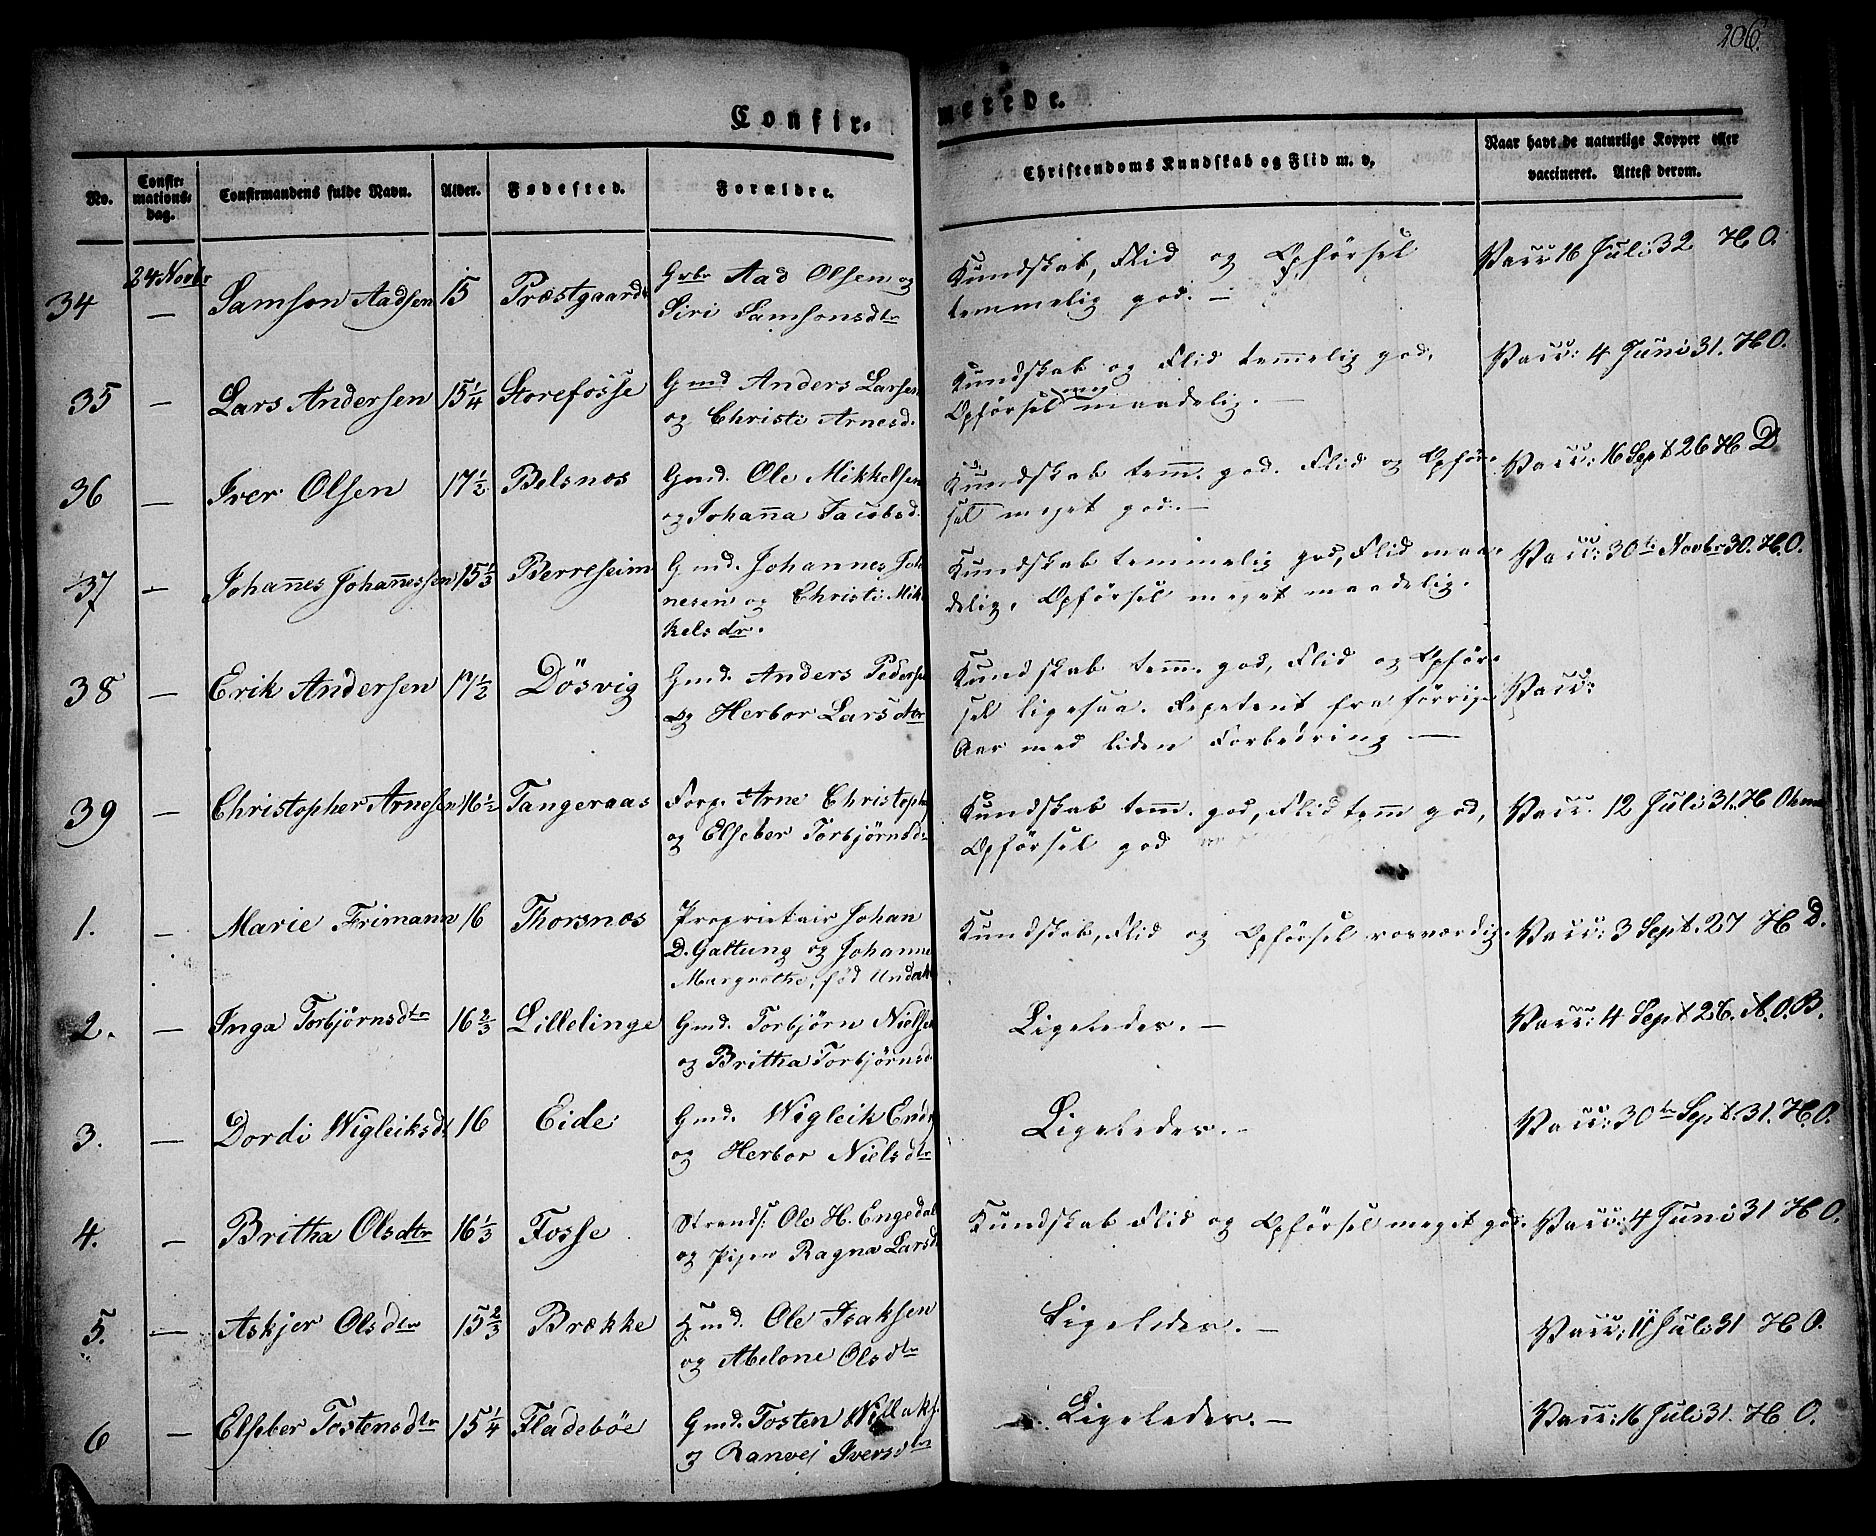 206.
Confir- merede.
No.
Confirmations-
dag.
Confirmandens fulde Navn.
Alder.
Fødested.
Forældre.
Christendoms Kundskab og Flid m. v.
Naar havt de naturlige Kopper eller
vaccineret. Attest derom.
34 24 Novbr — Samson Aadsen 15 Præstgaard Gbr Aad Olsen og
Siri Samsonsdtr
Kundskab, Flid og Opførsel
temmelig god. —
Vacc 16 Juli 32 H O.
35 — Lars Andersen 15 1/4 Storefosse Gmd Anders Larsen
og Christi Arnesd.
Kundskab og Flid temelig god,
Opførsel maadelig. —
Vacc: 4 Juni 31. H O.
36 — Iver Olsen 17 1/2 Belsnæs Gmd. Ole Mikkelsen
og Johanna Jacobsd.
Kundskab tem. god. Flid og Opfør-
sel meget god. —
Vacc: 16 Sept 26 H D
37 — Johannes Johannessen 15 1/3 Berreseim Gmd. Johannes Joh
nesen og Christi Mik
kelsdr.
Kundskab temmelig god, Flid maa-
delig, Opførsel meget maadelig.
Vacc: 30te Novbr 30. H. O.
38 — Erik Andersen 17 1/2 Dösvig Gmd. Anders Pederse
og Herbor Larsdtr
Kundskab tem. god, Flid og Opfør-
sel ligesaa. Repetent fra förrige
Aar med liden Forbedring —
Vacc:
39 — Christopher Arnesen 16 1/2 Tangeraas Forp. Arne Christoph
og Elseber Torbjørnsd
Kundskab tem. god, Flid tem god,
Opførsel god
Vacc. 12 Juli 31. H O
1. — Marie Frimann 16 Thorsnæs Proprietair Johan
D. Galtung og Johanne
Margrethe, fød Undahl
Kundskab, Flid og Opførsel rosværdig.
Vacc: 3 Sept. 27 H D.
2. — Inga Torbjörnsdtr 16 2/3 Lillelinge Gmd. Torbjørn Nielsen
og Britha Torbjørnsd
Ligeledes. —
Vacc: 4 Sept 26. A. O. B.
3. — Dordi Wigleiksdt 16 Eide Gmd. Wigleik End
og Herbor Nielsdtr
Ligeledes. —
Vacc: 30te Sept. 31. H. O.
4. — Britha Olsdtr 16 1/3 Fosse Strands. Ole H. Engedal
og Pigen Ragna Larsd
Kundskab Flid og Opførsel meget god.
Vacc: 4 Juni 31 H O.
5. — Askjer Olsdtr 15 2/3 Brække Hmd. Ole Isaksen
og Abelone Olsdtr
Ligeledes. —
Vacc: 11 Juli 31 H O.
6 — Elseber Tostensdtr 15 1/4 Fladebøe Gmd. Tosten
og Ranvej Iversdtr
Ligeledes. —
Vacc: 16 Juli 31. H O.